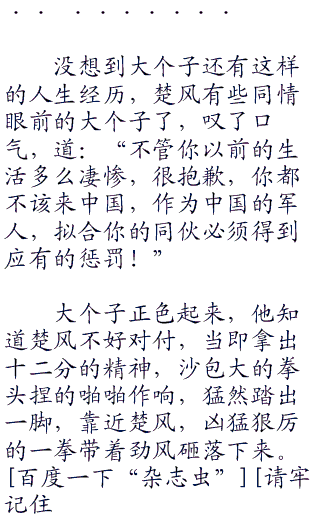 . . . . . . . . . .
没想到大个子还有这样
的人生经历，楚风有些同情
眼前的大个子了，叹了口
气，道：“不管你以前的生
活多么凄惨，很抱歉，你都
不该来中国，作为中国的军
人，拟合你的同伙必须得到
应有的惩罚！”
大个子正色起来，他知
道楚风不好对付，当即拿出
十二分的精神，沙包大的拳
头捏的啪啪作响，猛然踏出
一脚，靠近楚风，凶猛狠厉
的一拳带着劲风砸落下来。
[百度一下“杂志虫”][请牢
记住